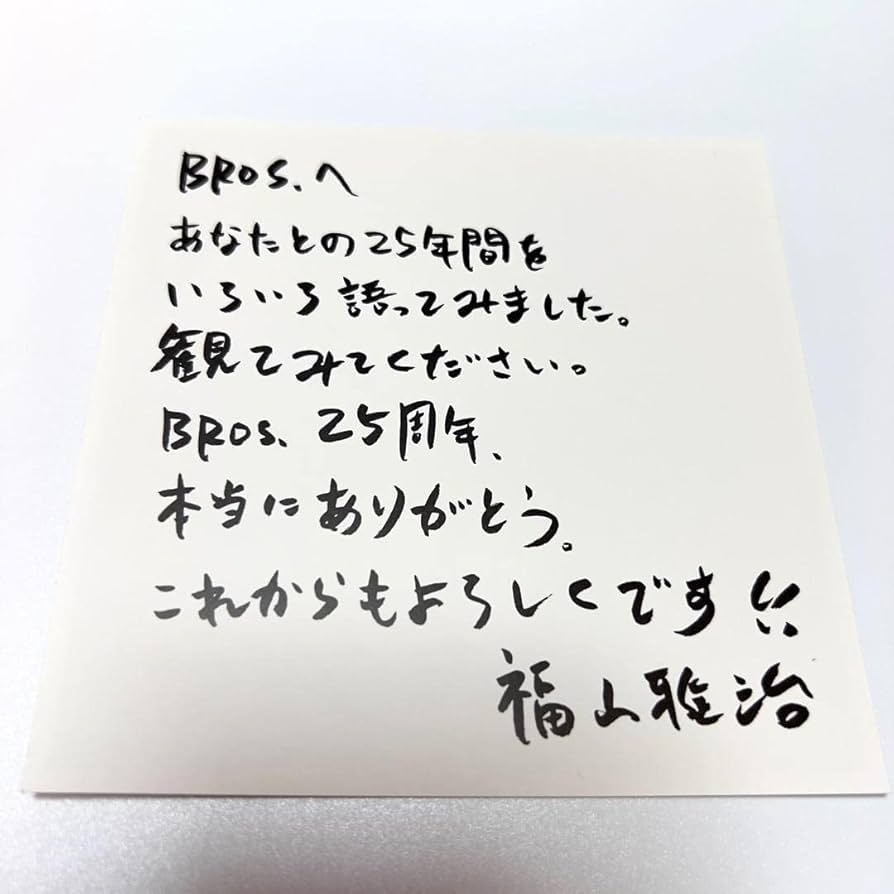 BROS.へ
あなたとの25年間を
いろいろ語ってみました。
観てみてください。
BROS. 25周年、
本当にありがとう。
これからもよろしくです!!
福山雅治